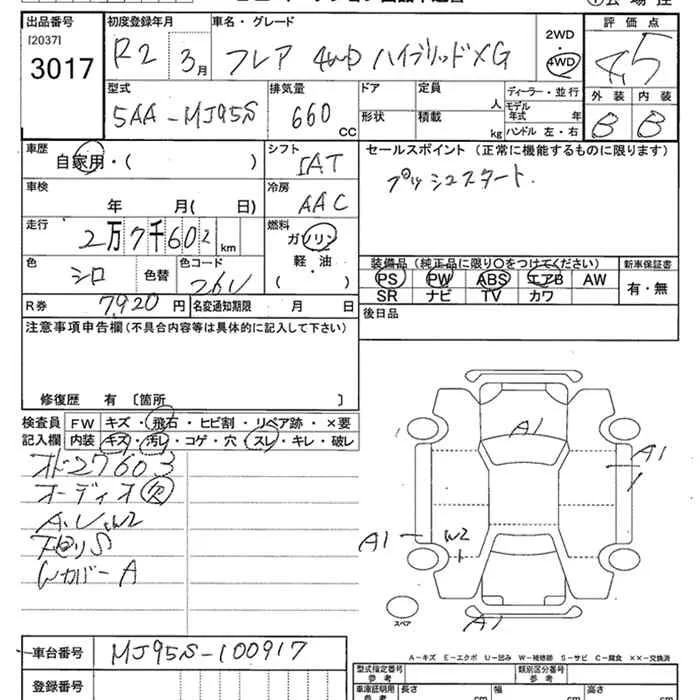 出品番号 初度登録年月 車名・グレード 2WD 評価点
[2037] 3017 R2 3月 フレア 4WD ハイブリッドXG 4WD 4.5
型式 排気量 ドア 定員 人 ディーラー・並行 外装 内装
5AA-MJ95S 660 CC 形状 積載 kg モデル年式 年 ハンドル 左・右 B B
車歴 自家用・( ) シフト IAT セールスポイント (正常に機能するものに限ります)
車検 年 月( 日) 冷房 AAC プッシュスタート.
走行 2万7千602km 燃料 ガソリン 軽・油 ( )
色 シロ 色替 色コード 26U 装備品 (純正品に限り○をつけてください) 新車保証書
PS PW ABS エアB AW 有・無
SR ナビ TV カワ
R券 7,920円 名変通知期限 月 日 後日品
注意事項申告欄 (不具合内容等は具体的に記入して下さい)
修復歴 有 〔箇所 〕
検査員 FW キズ・飛石・ヒビ割・リペア跡・×要
記入欄 内装 キズ・汚レ・コゲ・穴・スレ・キレ・破レ
オド27603
オーディオ欠
下廻りS
WカバーA
A1
A1
A1 W2
A1
スペア
A-キズ E-エクボ U-凹み W-補修跡 S-サビ C-腐食 ××-交換済
車台番号 MJ95S-100917
登録番号
型式指定番号 参考 類別区分番号 参考
車庫証明用 参考 長さ cm 幅 cm 高さ cm